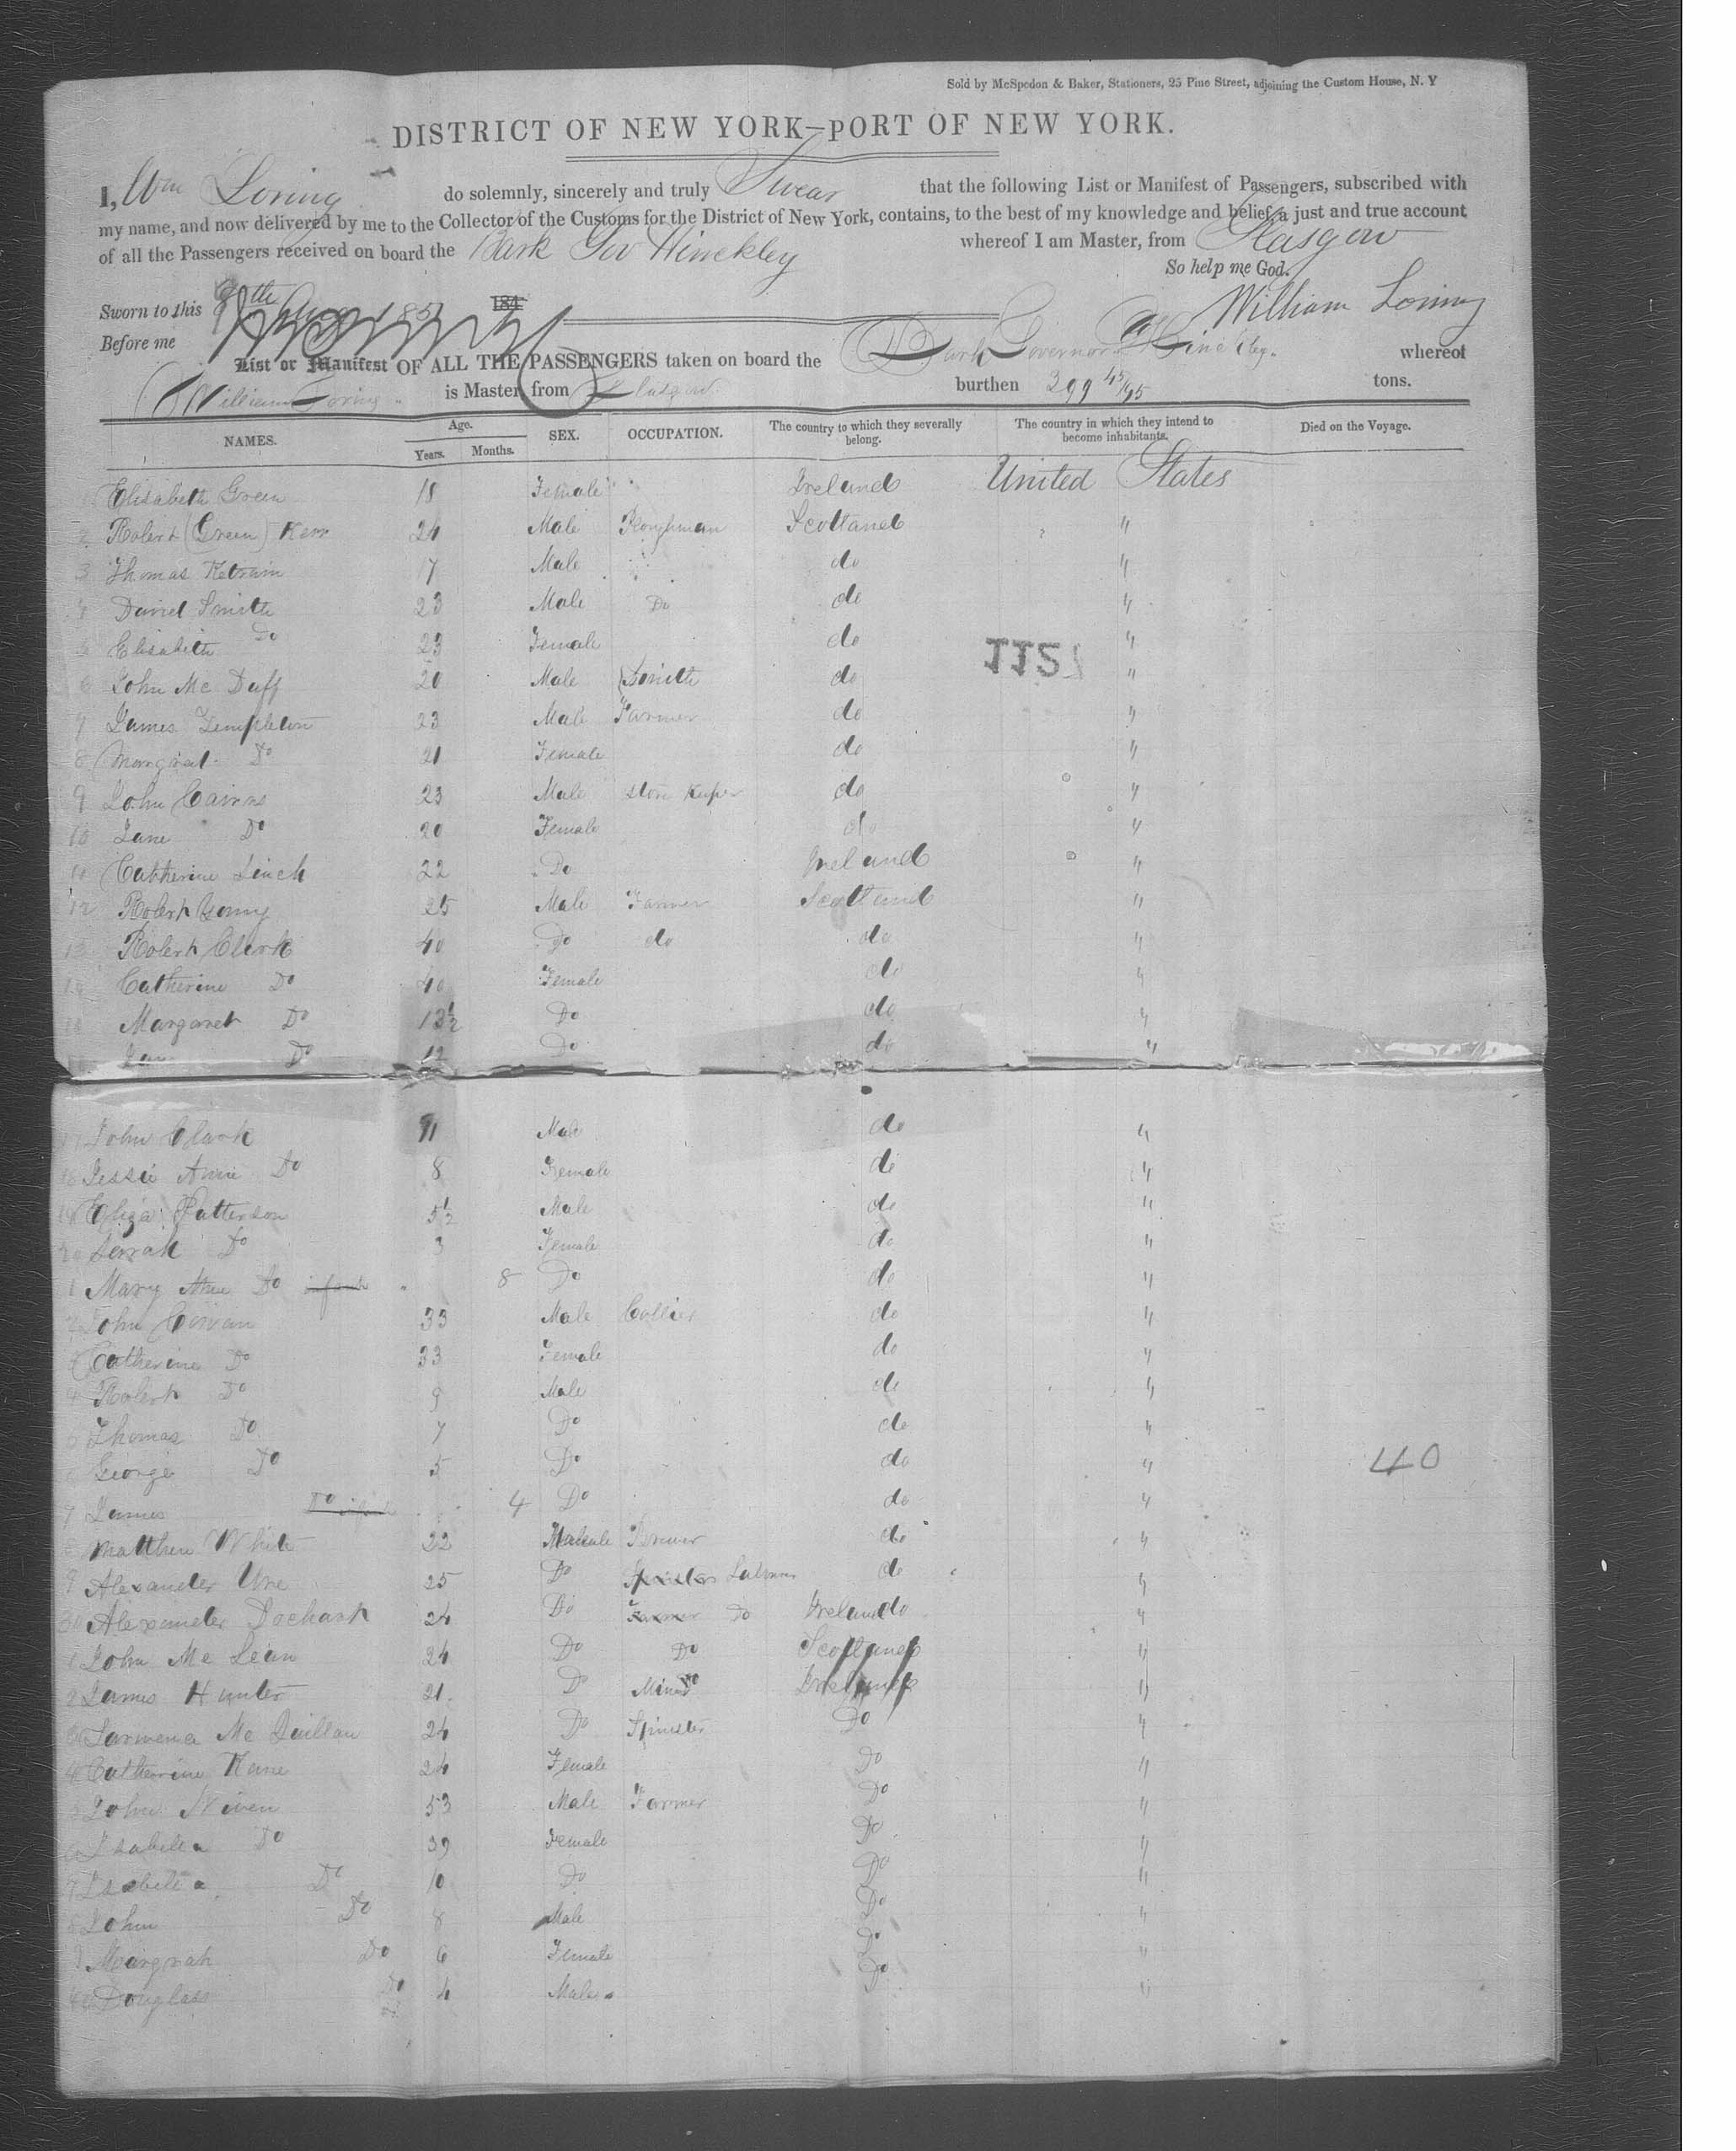 Sold by McSpedon & Baker, Stationers, 25 Pine Street, adjoining the Custom House, N. Y
DISTRICT OF NEW YORK—PORT OF NEW YORK.
I, Wm Loring do solemnly, sincerely and truly Swear that the following List or Manifest of Passengers, subscribed with
my name, and now delivered by me to the Collector of the Customs for the District of New York, contains, to the best of my knowledge and belief, a just and true account
of all the Passengers received on board the Bark Gov Hinckley whereof I am Master, from Glasgow
So help me God.
Sworn to this 8th Augt 1851 184 William Loring
Before me
List or Manifest OF ALL THE PASSENGERS taken on board the Bark Governor Hinckley whereof
William Loring is Master, from Glasgow burthen 399 45/95 tons.
NAMES. Age. Years. Months. SEX. OCCUPATION. The country to which they severally belong. The country in which they intend to become inhabitants. Died on the Voyage.
Elisabeth Green 18 Female Ireland United States
2 Robert (Green) Kerr 24 Male Ploughman Scotland "
3 Thomas 17 Male do "
4 Daniel Smith 23 Male Do do "
5 Elisabeth Do 23 Female do "
1125
6 John Mc Duff 20 Male Smith do "
7 James Templeton 23 Male Farmer do "
8 Margrat Do 21 Female do "
9 John Cairns 23 Male Store Keeper do "
10 Jane Do 20 Female do "
11 Catherine Linch 22 Do Ireland "
12 Robert Young 25 Male Farmer Scotland "
13 Robert Clark 40 Do do do "
14 Catherine Do 40 Female do "
15 Margaret Do 13½ Do do "
Do 12 Do do "
17 John Clark 11 Male do "
18 Jessie Anne Do 8 Female do "
19 Eliza Patterson 5½ Male do "
20 Serrah Do 3 Female do "
1 Mary Ann Do infant 8 Do do "
2 John Cowan 33 Male Collier do "
3 Catherine Do 33 Female do "
4 Robert Do 9 Male do "
5 Thomas Do 7 Do do "
6 George Do 5 Do do "
40
7 James Do infant 4 Do do "
8 Matthew White 22 Male do "
9 Alexander Ure 25 Do Spinster Labourer do "
30 Alexander Dochart 24 Do Farmer Do Ireland do "
1 John Mc Lean 24 Do Do Scotland "
2 James Hunter 21 Do Miner Ireland "
3 Mc Quillan 24 Do Spinster Do "
4 Catherine Kane 24 Female Do "
5 John Niven 53 Male Farmer Do "
6 Isabella Do 39 Female Do "
7 Isabella Do 10 Do Do "
8 John Do 8 Male Do "
9 Margrah Do 6 Female Do "
40 Douglass Do 4 Male Do "